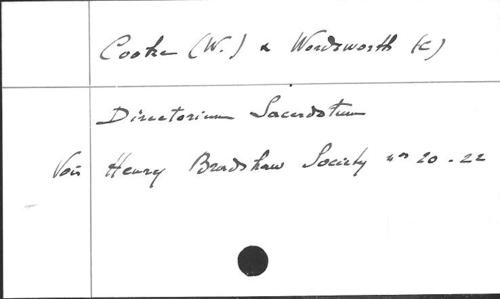 Cooke (W.) & Wordsworth (C)
Directorium Sacerdotum
Voir Henry Bradshaw Society nos 20-22